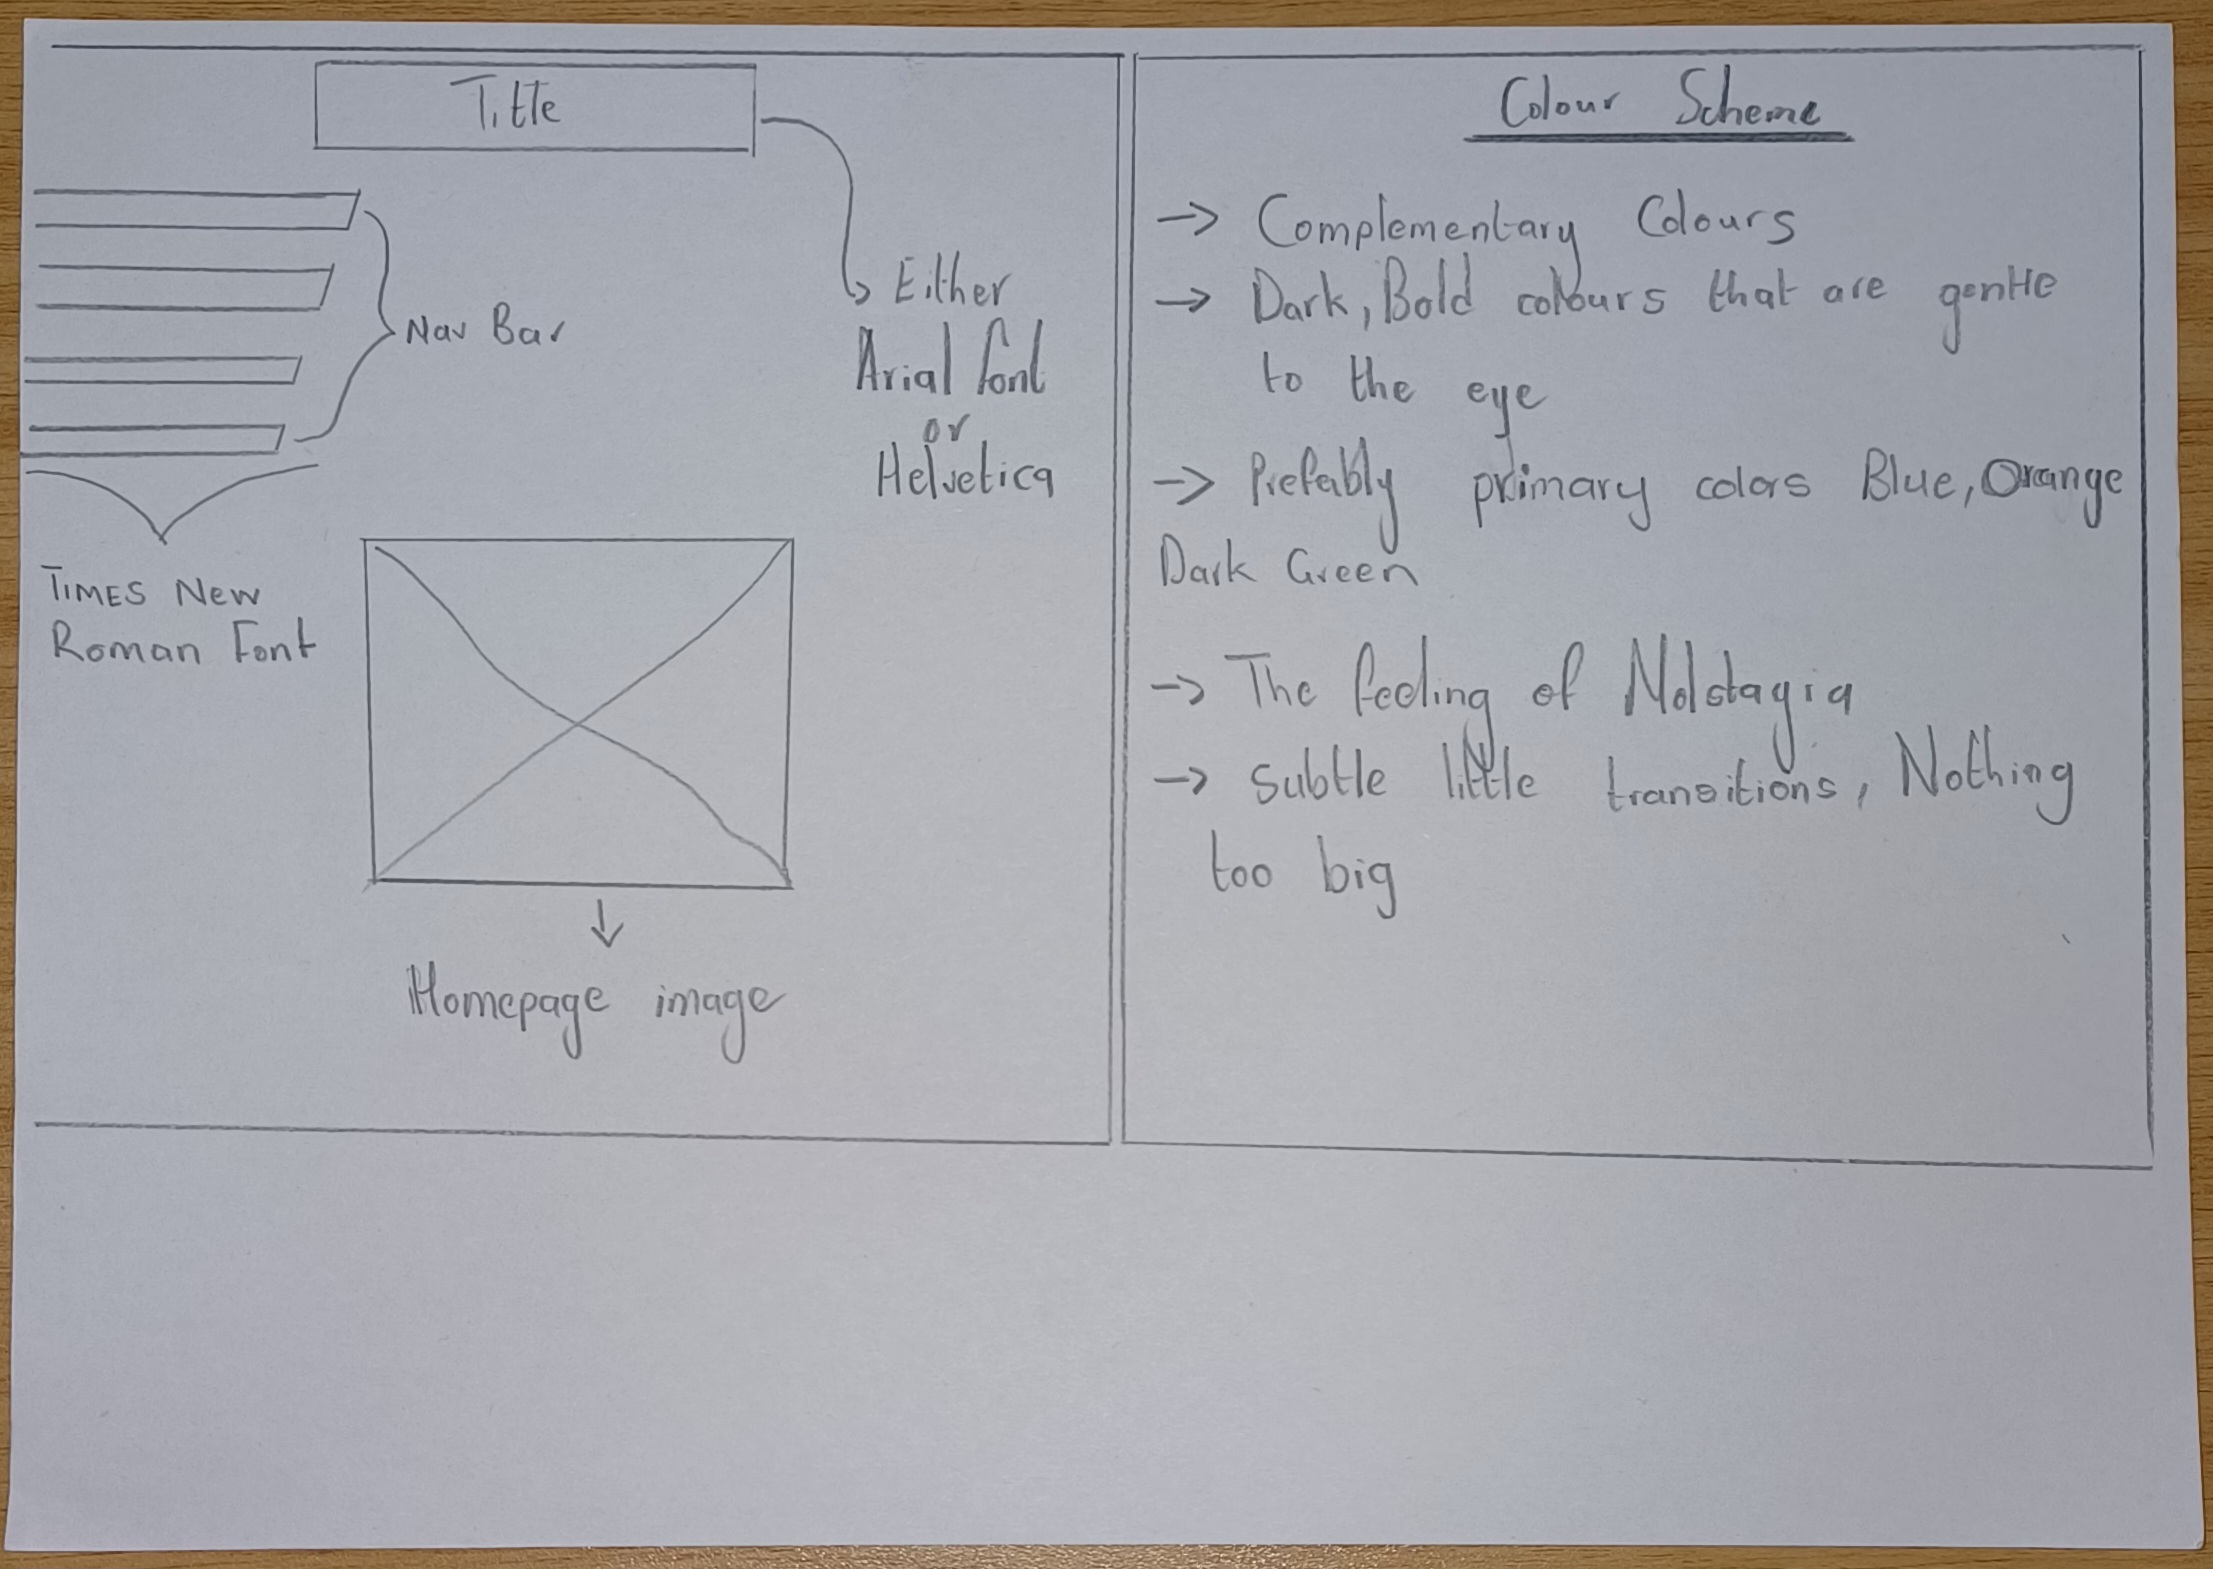 Title
Nav Bar
Either
Arial font
or
Helvetica
TIMES New
Roman Font
Homepage image
Colour Scheme
→ Complementary Colours
→ Dark, Bold colours that are gentle
to the eye
→ Prefably primary colors Blue, Orange
Dark Green
→ The feeling of Nolstagia
→ Subtle little transitions, Nothing
too big